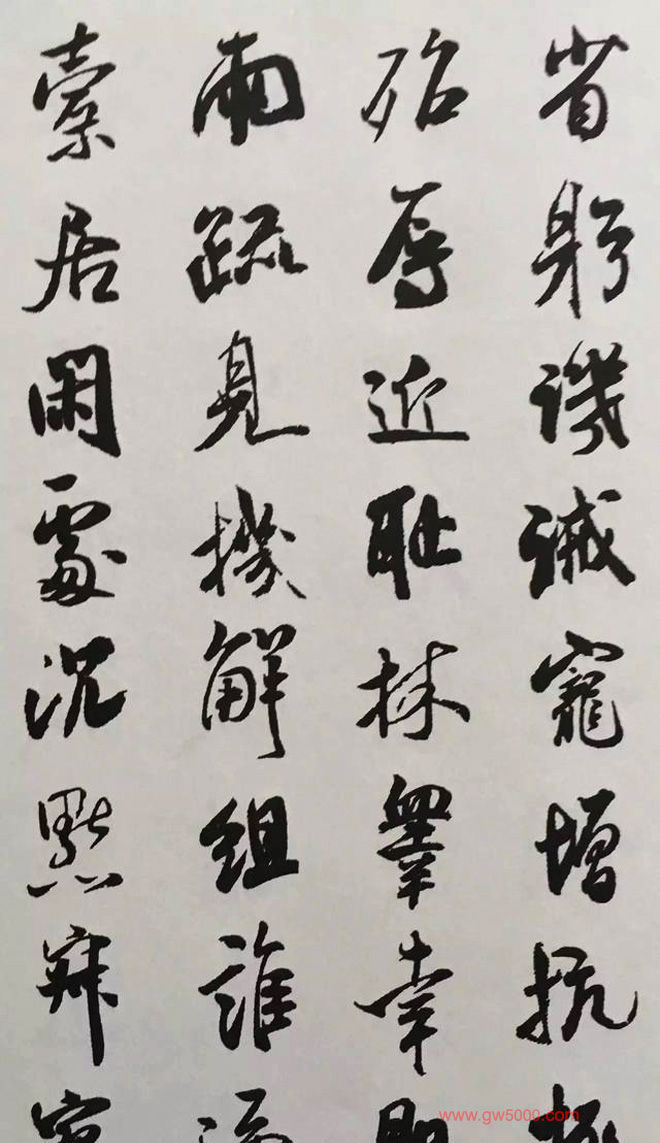 省躬譏誡寵增抗極
殆辱近耻林睾幸即
兩疏見機解組誰逼
索居閑處沉默寂寥
www.gw5000.com